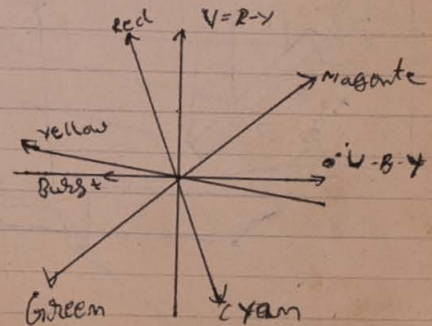 Red
V = R-Y
Magente
Yellow
0° U - B - Y
Burst
Green
Cyan